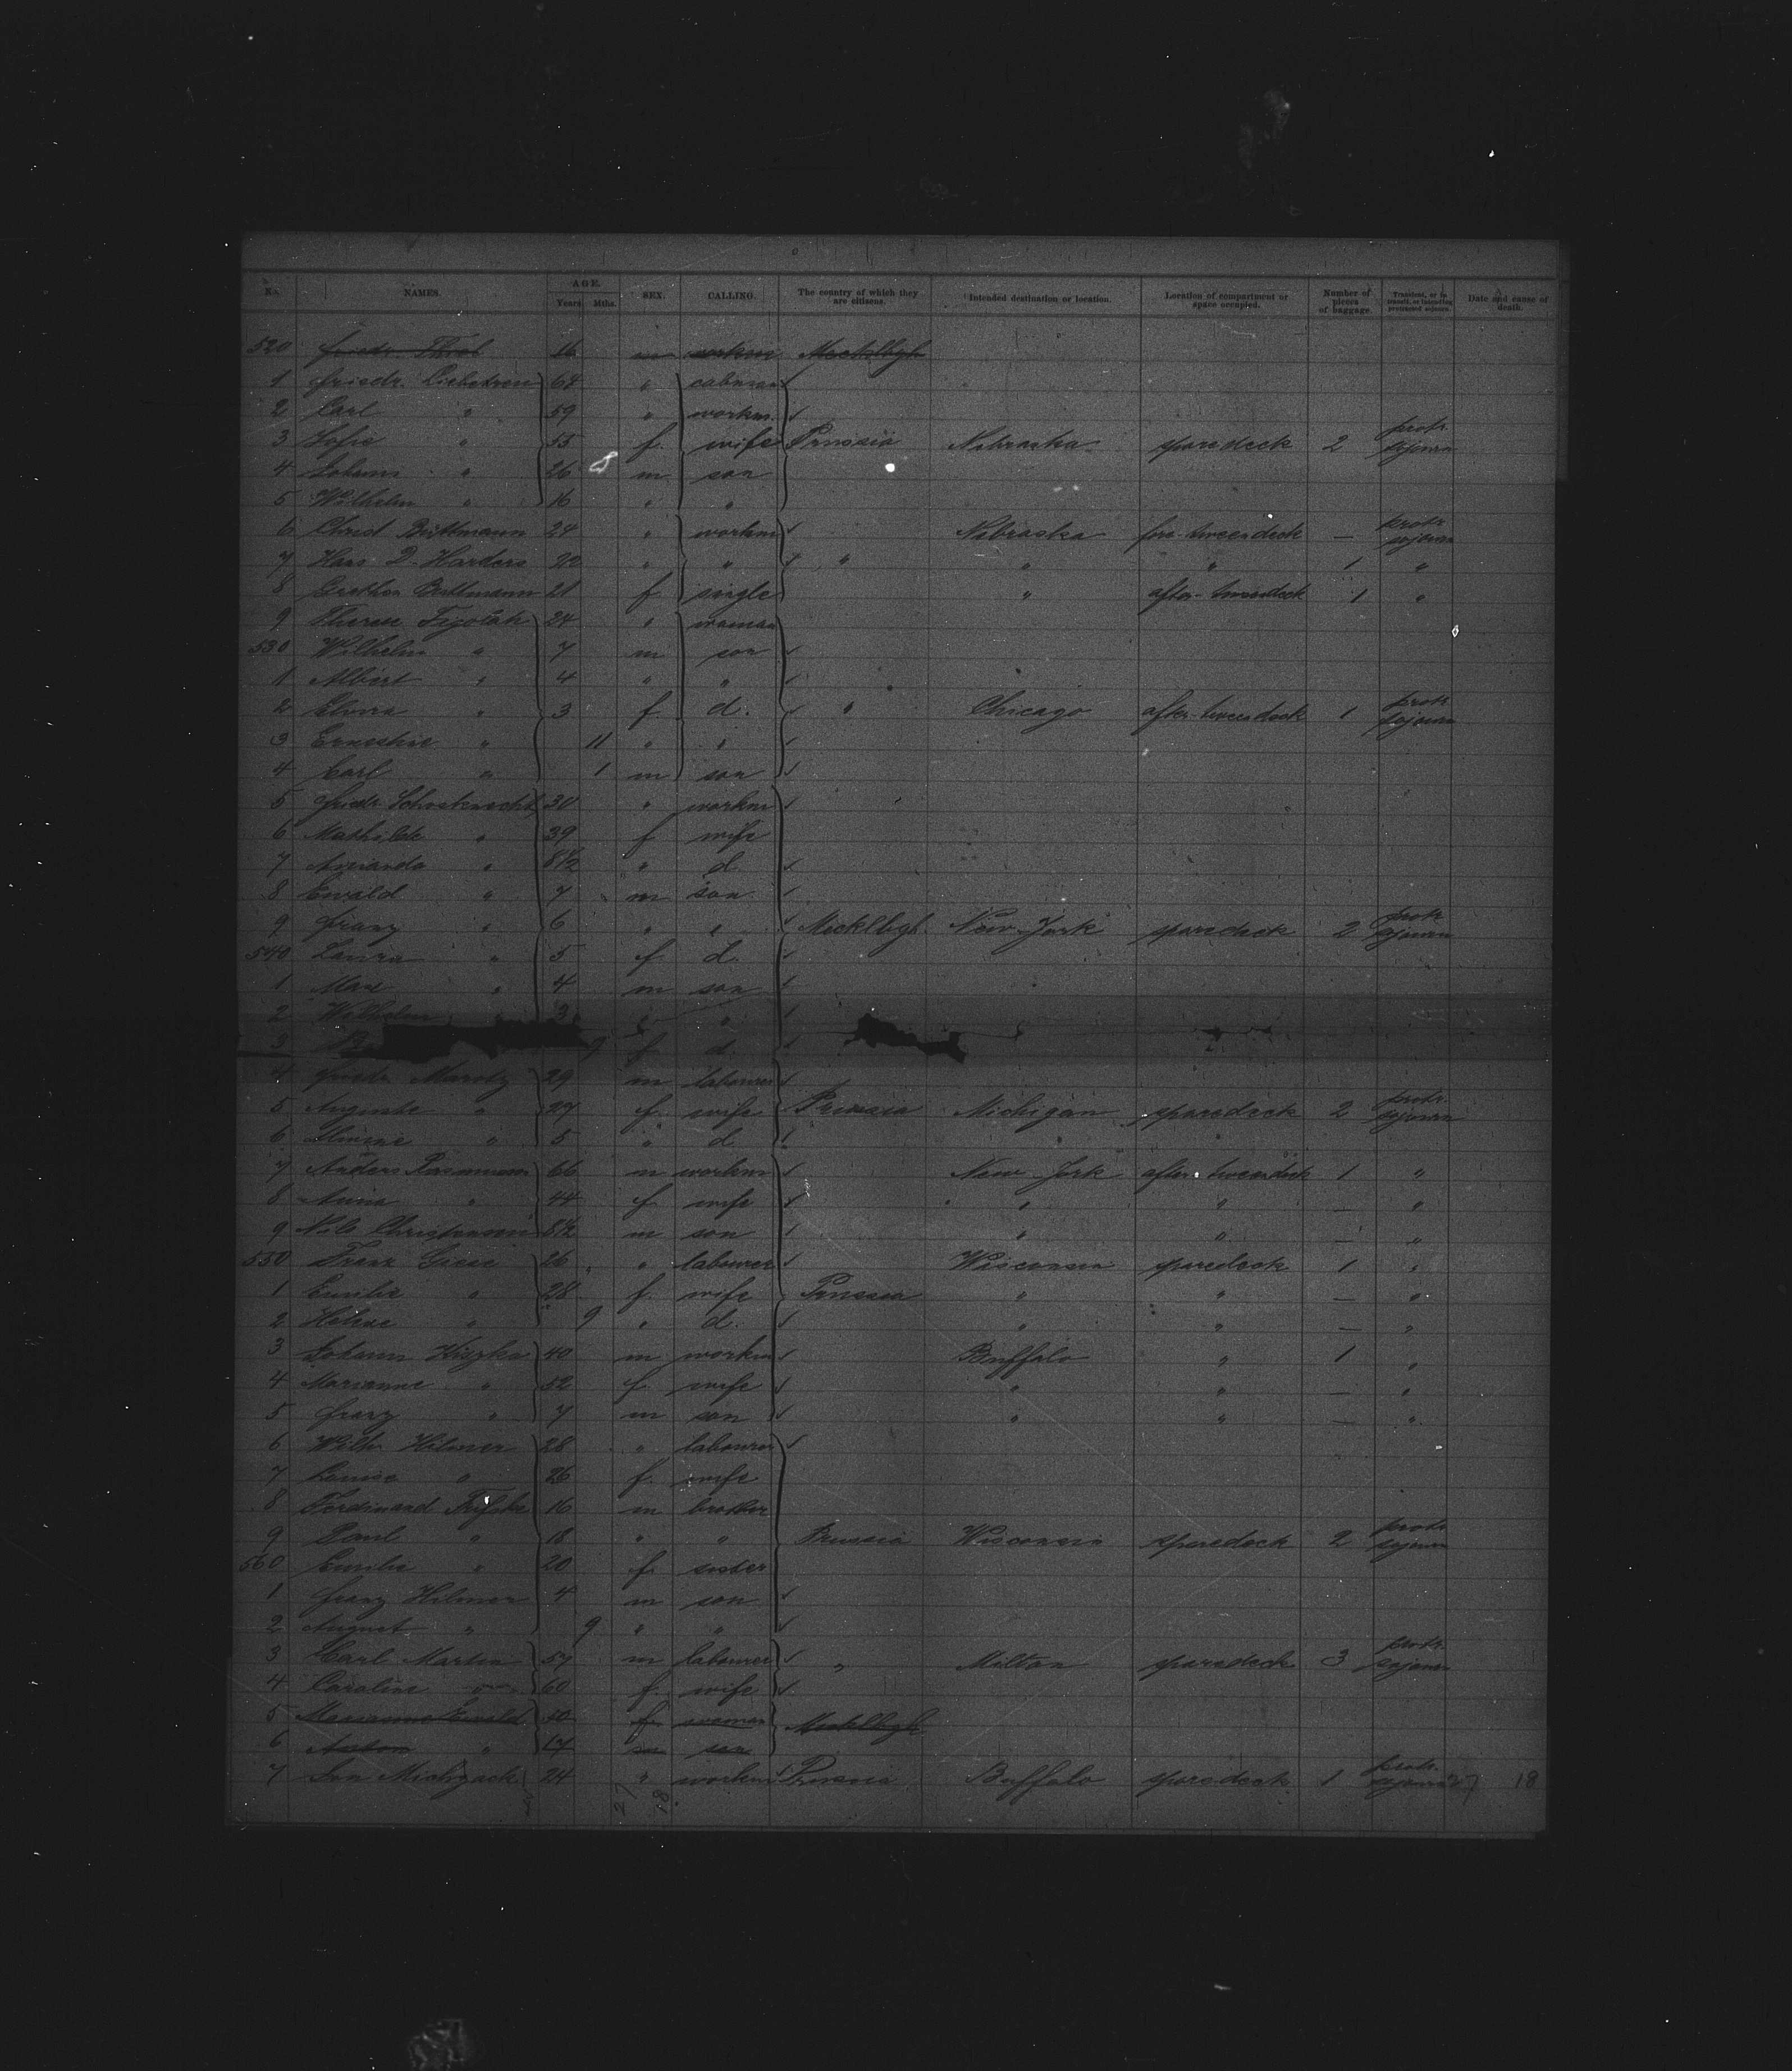 No. NAMES. AGE. Years Mths. SEX. CALLING. The country of which they are citizens. Intended destination or location. Location of compartment or space occupied. Number of pieces of baggage. Transient, or in transit, or intending protracted sojourn. Date and cause of death.
520 Friedr. Thiel 16 m workm Mecklbgh
1 Friedr. 64 "
2 Carl " 59 " workm.
3 Sofie " 55 f. wife Prussia Nebraska sparedeck 2 protr. sojourn
4 Johann " 26 m son
5 Wilhelm " 16 " "
6 Christ Büttmann 24 " workm Nebraska fore-tweendeck — protr. sojourn
7 Hans D. Harders " " " " " 1 "
8 Grethen Büttmann 21 f single " after-tweendeck 1 "
9 Therese 24 " woman
530 Wilhelm " 7 m son
1 Albert " 4 " "
2 Elvira " 3 f. d. " Chicago after-tweendeck 1 protr. sojourn
3 Ernestine " 11 " "
4 Carl " 1 m son
5 Friedr. Schossknecht 30 " workm
6 Mathilde " 39 f wife
7 Amanda " 8½ " d
8 Ewald " 7 m son
9 Franz " 6 " " Mecklbgh. New-York sparedeck 2 protr. sojourn
540 Laura " 5 f d.
1 Max " 4 m son
2 Wilhelm " 3 " "
3 9 f d.
4 Friedr. Marotz 29 m labourer
5 Auguste " 27 f. wife Prussia Michigan sparedeck 2 protr. sojourn
6 " 5 " d
7 Anders Rasmussen 66 m workm New York after-tweendeck 1 "
8 Anna " 44 f wife " " — "
9 Nils Christensen 8½ m son " " — "
550 Franz Giese 26 " labourer Wisconsin sparedeck 1 "
1 Emilie " 28 f. wife Prussia " " — "
2 Helene " 9 " d. " " — "
3 Johann 40 m workm Buffalo " 1 "
4 Marianne " 52 f. wife " " — "
5 Franz " 7 m son " " — "
6 Wilh. Hilmer 28 " labourer
7 Louise " 26 f. wife
8 Ferdinand 16 m brother
9 Paul " 18 " " Prussia Wisconsin sparedeck 2 protr. sojourn
560 Emilie " 20 f. sister
1 Franz Hilmer 4 m son
2 August " 9 " "
3 Carl Martin 57 m labourer " Milton sparedeck 3 protr. sojourn
4 Caroline " 60 f. wife
5 Marianne Ewald 50 f. woman Mecklbgh
6 Anton " 17 m son
7 Jan 24 " workm Prussia Buffalo sparedeck 1 protr. sojourn 27 18
27 18